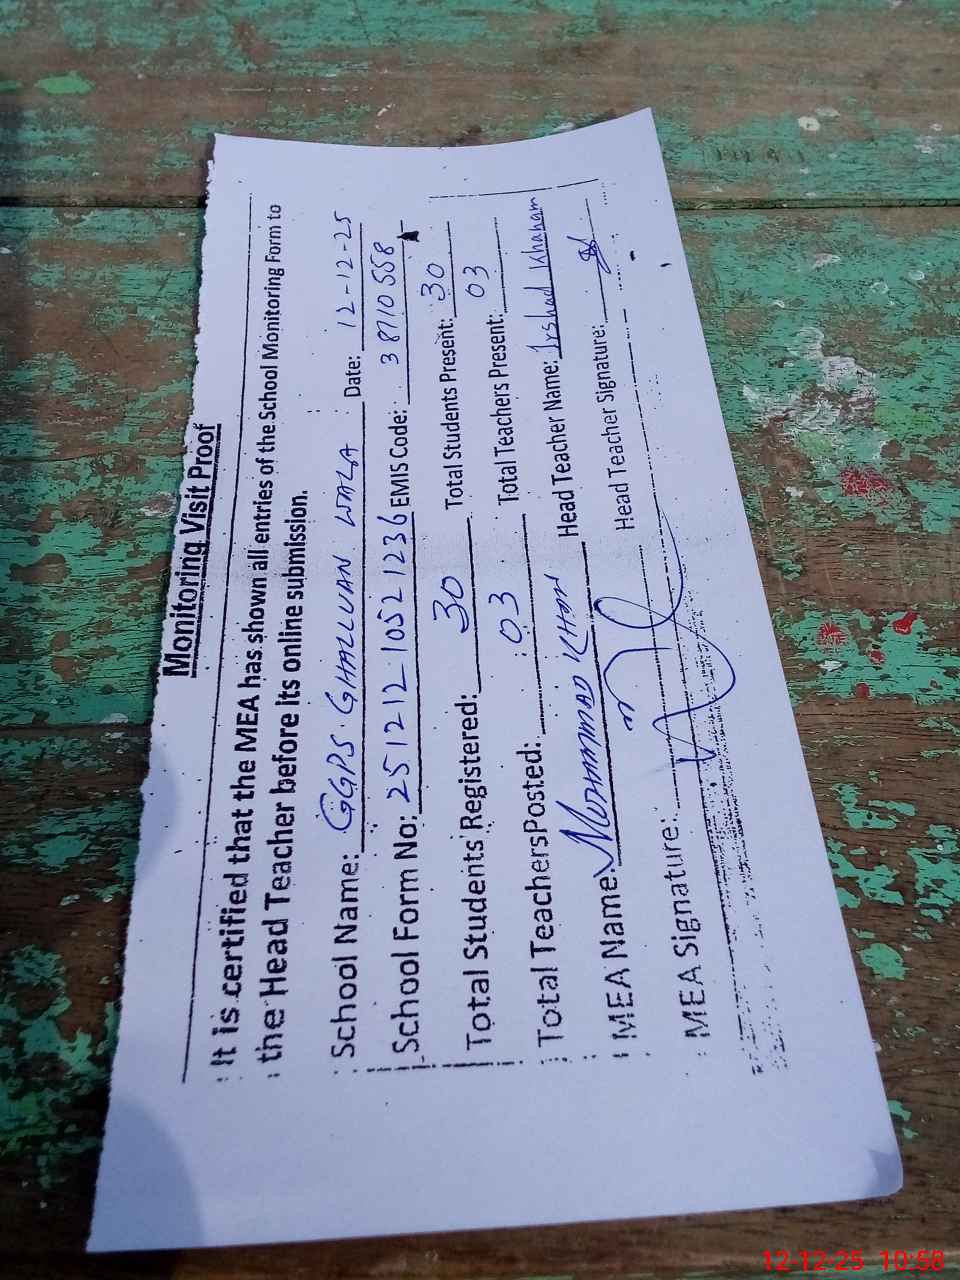 Monitoring Visit Proof
It is certified that the MEA has shown all entries of the School Monitoring Form to
the Head Teacher before its online submission.
School Name: GGPS. GHAZLUAN WALA Date: 12-12-25
School Form No: 25121210521236 EMIS Code: 38710558
Total Students Registered: 30 Total Students Present: 30
Total TeachersPosted: 03 Total Teachers Present: 03
MEA Name: MUHAMMAD KHAN Head Teacher Name: Irshad Khanam
MEA Signature: Head Teacher Signature:
12-12-25 10:58